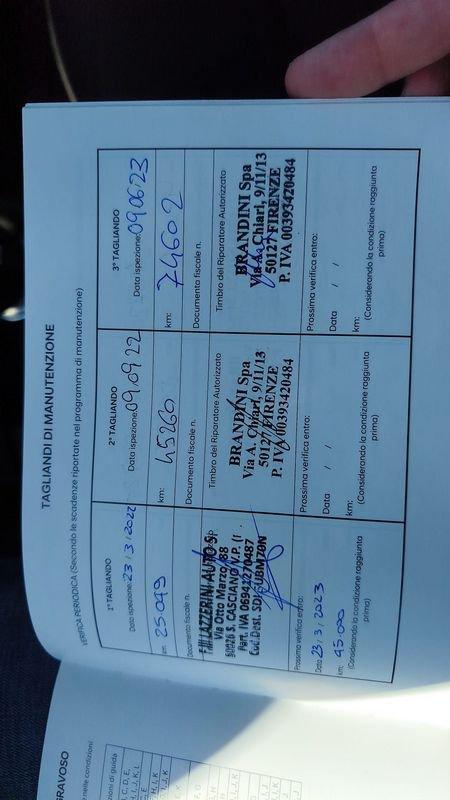 TAGLIANDI DI MANUTENZIONE
VERIFICA PERIODICA (Secondo le scadenze riportate nel programma di manutenzione)
1° TAGLIANDO
Data ispezione: 23/3/2022
km: 25.093
Documento fiscale n.
F.lli LAZZERINI AUTO
Via Otto Marzo, 88
50026 S. CASCIANO V.P. (
Part. IVA 06941270487
Cod. Dest.
Prossima verifica entro:
Data 23/3/2023
km: 45.000
(Considerando la condizione raggiunta
prima)
2° TAGLIANDO
Data ispezione: 09.09.22
km: 45260
Documento fiscale n.
Timbro del Riparatore Autorizzato
BRANDINI Spa
Via A. Chiari, 9/11/13
50127 FIRENZE
P. IVA 00393420484
Prossima verifica entro:
Data / /
km:
(Considerando la condizione raggiunta
prima)
3° TAGLIANDO
Data ispezione: 090623
km: 74602
Documento fiscale n.
Timbro del Riparatore Autorizzato
BRANDINI Spa
Via A. Chiari, 9/11/13
50127 FIRENZE
P. IVA 00393420484
Prossima verifica entro:
Data / /
km:
(Considerando la condizione raggiunta
prima)
GRAVOSO
nelle condizioni
zioni di guida